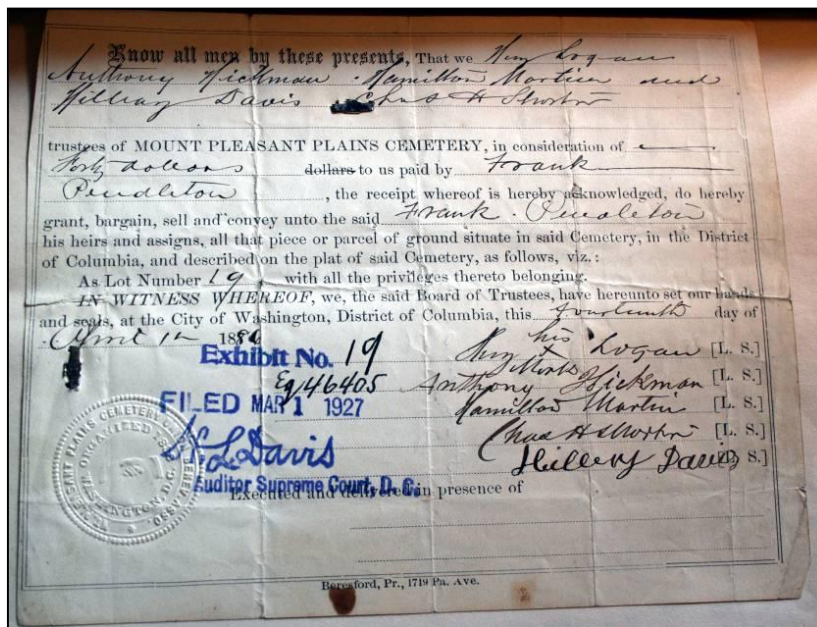 Know all men by these presents, That we Hy Logan
Anthony Hickman Hamilton Martin and
Hillray Davis Chas H Shorter
trustees of MOUNT PLEASANT PLAINS CEMETERY, in consideration of
Forty dollars dollars to us paid by Frank
Pendleton, the receipt whereof is hereby acknowledged, do hereby
grant, bargain, sell and convey unto the said Frank Pendleton
his heirs and assigns, all that piece or parcel of ground situate in said Cemetery, in the District
of Columbia, and described on the plat of said Cemetery, as follows, viz.:
As Lot Number 19 with all the privileges thereto belonging.
IN WITNESS WHEREOF, we, the said Board of Trustees, have hereunto set our hands
and seals, at the City of Washington, District of Columbia, this fourteenth day of
April 188
Exhibit No. 19
Eq 46405
FILED MAR 1 1927
Davis
Auditor Supreme Court, D. C.
his
Logan [L. S.]
Mark
Anthony Hickman [L. S.]
Hamilton Martin [L. S.]
Chas H Shorter [L. S.]
Hillery Davis [L. S.]
Executed and delivered in presence of
Beresford, Pr., 1719 Pa. Ave.